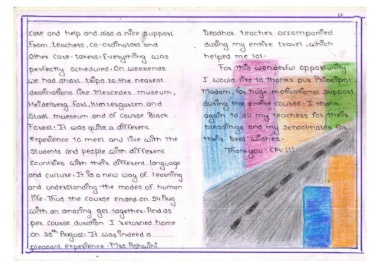 care and help and also a nice support
from teachers, co-ordinators and
other care-takers. Everything was
perfectly scheduled. On weekends
we had short trips to the nearest
destinations like Mercedes museum,
Heidelberg Fort, kletergarten and
Stadt museum and of course Black
Forest. It was quite a different
Experience to meet and live with the
students and people with different
countries with their different language
and culture. It is a new way of learning
and understanding the modes of human
life. Thus the course ended on 24 Aug
with an amazing get together. And as
per course duration I returned home
on 25th August. It was indeed a
pleasant experience. Mrs. Ashwini
teacher accompanied
during my entire travel, which
helped me lot.
For this wonderful opportunity
I would like to thanks our Principal
Madam, for huge motivational support
during the entire course. I thank
again to all my teachers for their
blessings and my schoolmates for
their best wishes.
Thank you